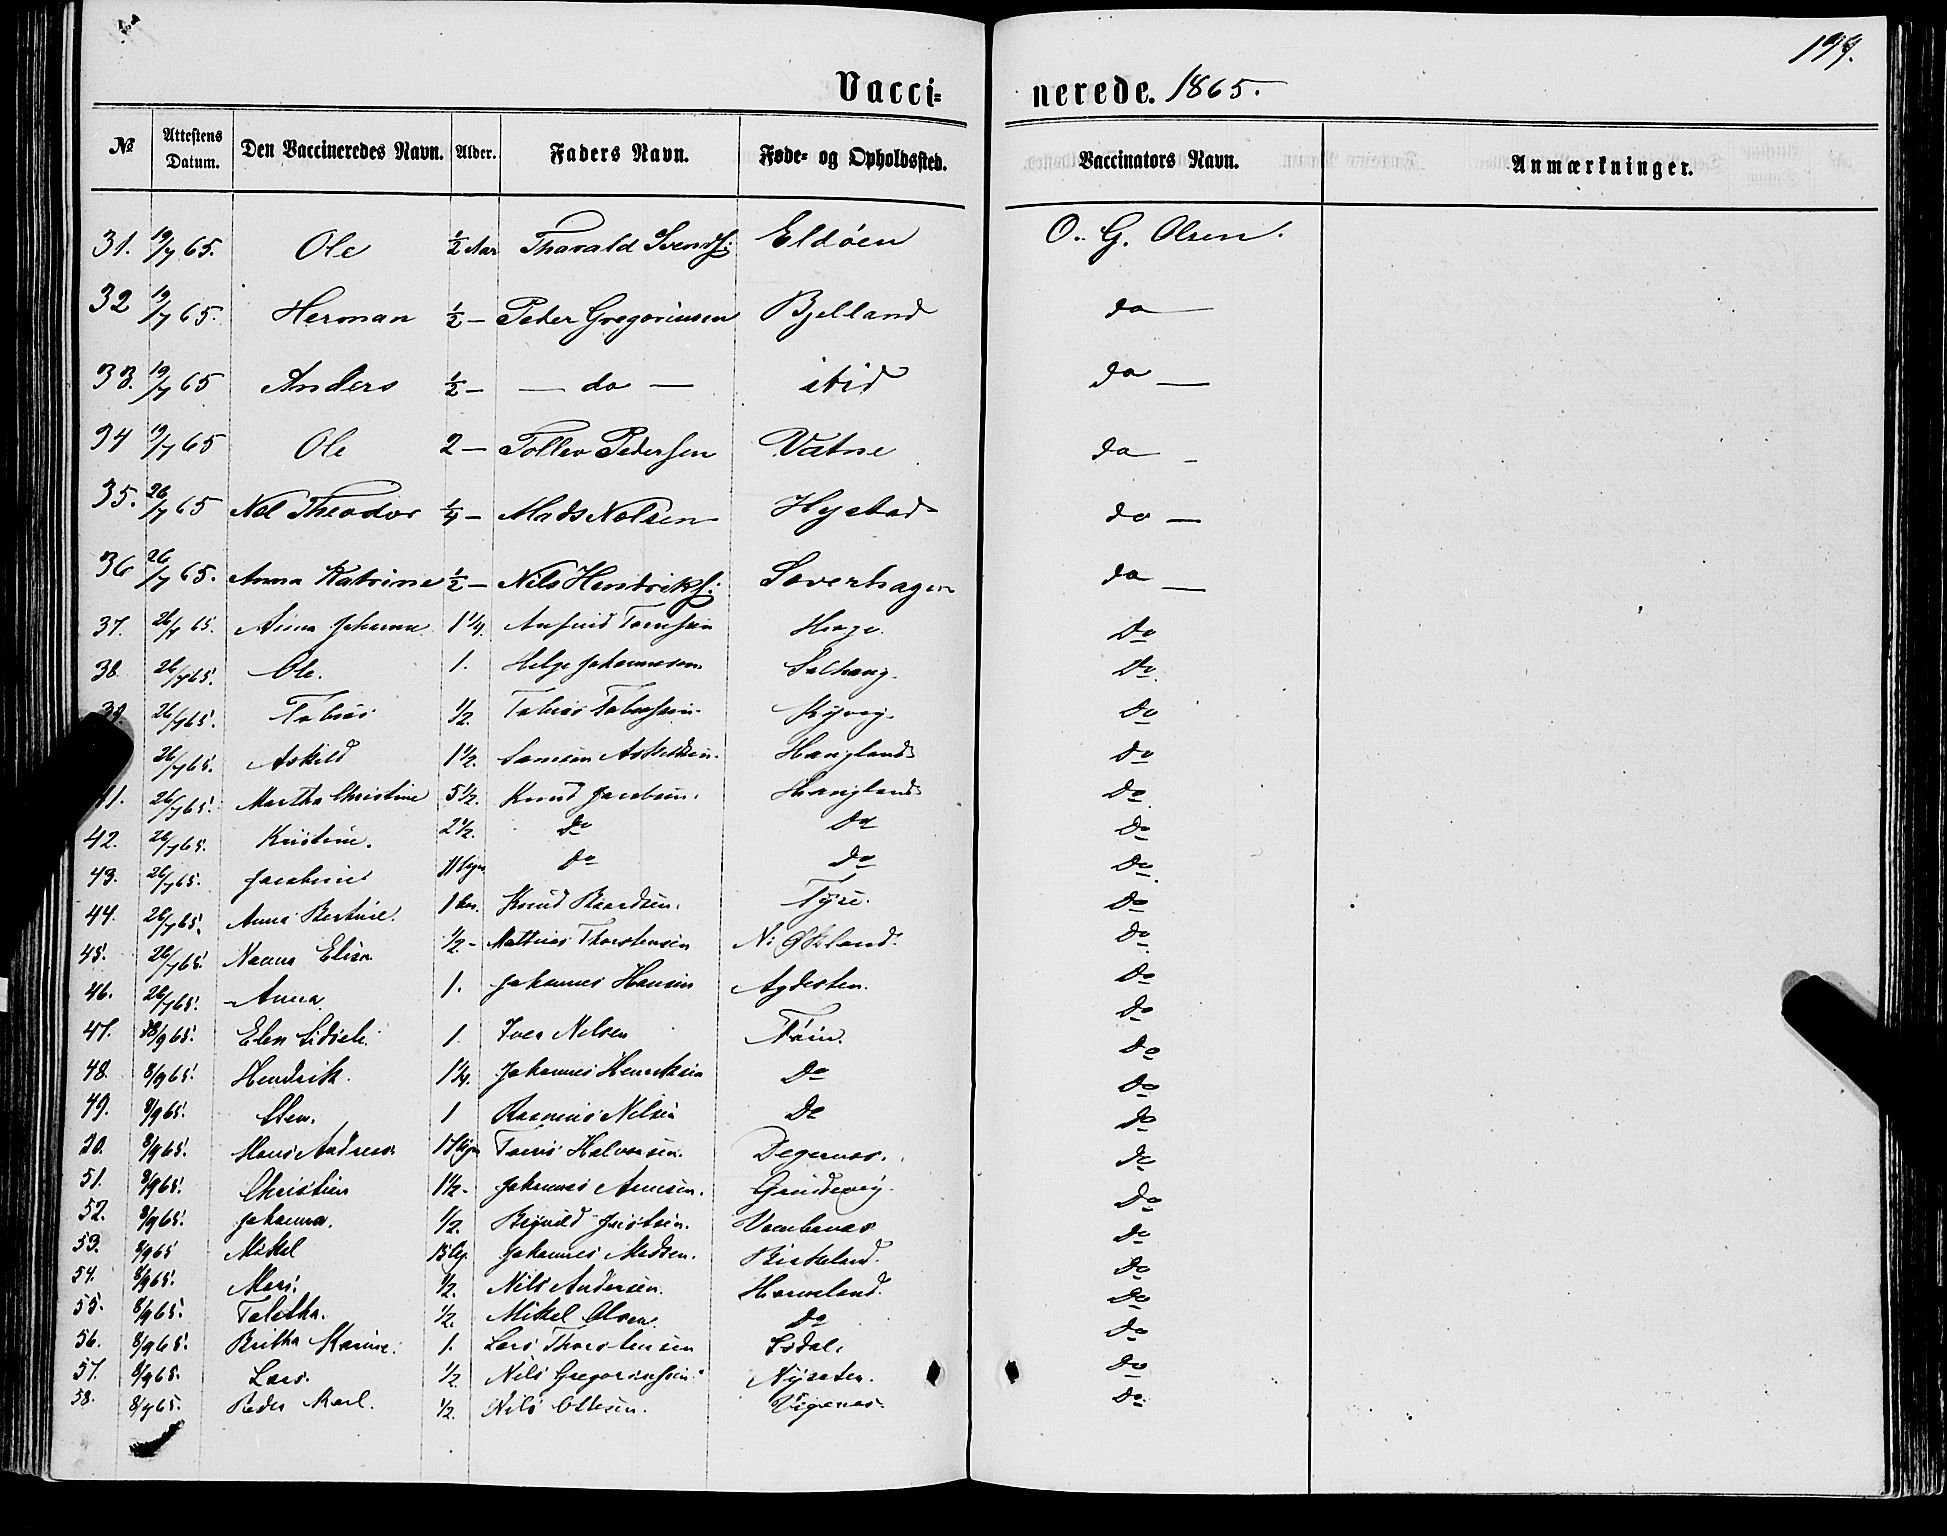 199.
Vaccinerede. 1865.
№ Attestens Datum. Den Vaccineredes Navn. Alder. Faders Navn. Føde- og Opholdssted. Vaccinators Navn. Anmærkninger.
31. 19/7 65. Ole ½ Aar Thorald Svends: Eldøen O. G. Olsen.
32 19/7 65. Herman ½ — Peder Gregoriussen Bjelland do —
33. 19/7 65 Anders ½ — — do — ibid do —
34 19/7 65 Ole 2 — Tollev Pedersen Vatne do —
35. 26/7 65 Nel Theodor ¼ — Mads Nelsen Hystad do —
36 26/7 65. Anna Katrine ½ — Nils Hendriks: Soverhagen do —
37. 26/7 65. Anna Johanna 1¼. Hage. Do
38. 26/7 65. Ole. 1. Helge Johannesen Do
39. 26/7 65. Tobias ½. Tobias Do
26/7 65. Askild 1½. Samson Haugland Do
41. 26/7 65. Martha Christine 5½. Knud Jacobsen. Haugland Do
42. 26/7 65. Kristine. 2½. Do Do Do
43. 26/7 65. Jacobine Do Do Do
44. 26/7 65. Anna Bertine. 1 Knud Baardsen. Tyse. Do
45. 26/7 65. Elisa ½ - Mathias Thorstensen N: Økland. Do
46. 26/7 65. Anna 1. Johannes Hansen Agdesten. Do
47. 8/9 65. Elen 1. Iver Nelsen Do
48. 8/9 65. Hendrik. 1¼. Johannes Henriksen Do Do
49. 8/9 65. Elen. 1 Rasmus Nelsen Do Do
50. 8/9 65. Hans Andreas Halvorsen. Degernes. Do
51. 8/9 65. Christian 1½. Johannes Arnesen. Do
52. 8/9 65. Johanna. ½. Do
53. 8/9 65 Mikel Johannes Madsen. Birkeland. Do
54. 8/9 65. ½. Nils Andersen. Do
55. 8/9 65. Taletha. ½. Mikel Olsen. Do Do
56. 8/9 65. Britha Karine. 1. Lars Thorstensen Isdal. Do
57. 8/9 65. Lars. ½ Nils Gregoriussen. Nyseter. Do
58. 8/9 65. Peder Karl. ½. Nils Ottesen. Vigenes. Do